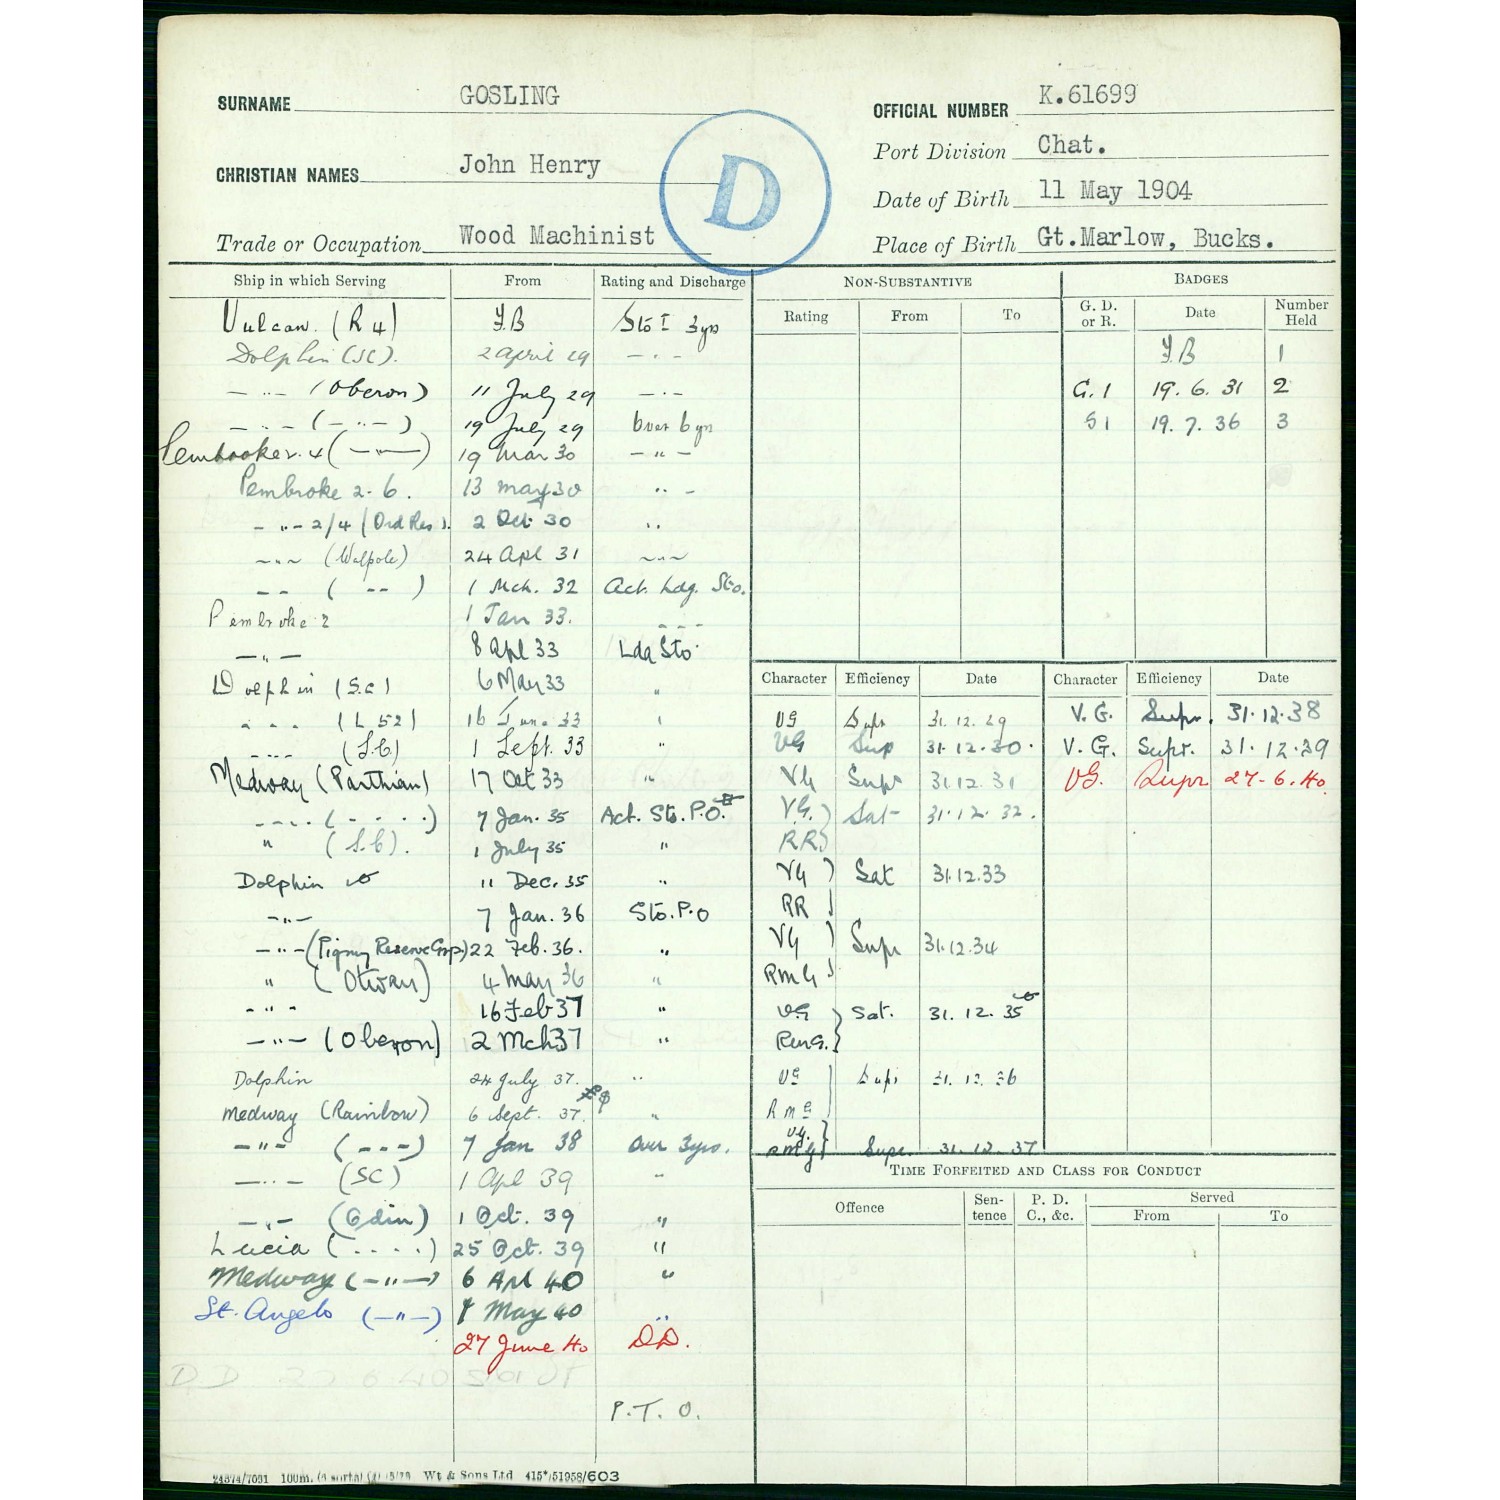 SURNAME GOSLING
OFFICIAL NUMBER K.61699
CHRISTIAN NAMES John Henry
Port Division Chat.
Date of Birth 11 May 1904
Trade or Occupation Wood Machinist
Place of Birth Gt.Marlow, Bucks.
D
Ship in which Serving From Rating and Discharge
Vulcan. (R 4) F.B Sto I 3yrs
Dolphin (SC). 2 April 29 - " -
- " - (Oberon) 11 July 29 - " -
- " - (- " -) 19 July 29 over 6 yrs
(- " -) 19 Mar 30 - " -
Pembroke 2-6. 13 May 30 " -
- " - 2/4 (Ord Res). 2 Oct 30 "
- " - (Walpole) 24 Apl 31 - " -
- - ( - - ) 1 Mch. 32 Act. Ldg. Sto.
Pembroke 2 1 Jan 33. - - -
- " - 8 Apl 33 Ldg Sto.
Dolphin (S.C) 6 May 33 "
" (L 52) 16 June 33 "
- " - (S.C) 1 Sept. 33 "
Medway (Parthian) 17 Oct 33 "
- - - (- - - -) 7 Jan. 35 Act. Sto. P.O.
" (S.C). 1 July 35 "
Dolphin 11 Dec. 35 "
- " - 7 Jan. 36 Sto. P.O
- " - (Pigmy Reserve Grp.) 22 Feb. 36. "
" (Otway) 4 May 36 "
- " - 16 Feb 37 "
- " - (Oberon) 2 Mch 37 "
Dolphin 24 July 37. "
Medway (Rainbow) 6 Sept. 37. "
- " - (- - -) 7 Jan 38 Over 3yrs.
- " - (SC) 1 Apl 39 "
- " - (Odin) 1 Oct. 39 "
Lucia (- - - -) 25 Oct. 39 "
Medway (- " -) 6 Apl 40 "
St. Angelo (- " -) May 40 "
27 June 40 DD.
DD 27 6 40
P.T.O.
NON-SUBSTANTIVE
Rating From To
BADGES
G. D. or R. Date Number Held
F.B 1
G.1 19. 6. 31 2
G1 19. 7. 36 3
Character Efficiency Date
VG Supr 31. 12. 29
VG Sup 31.12.30.
VG Supr 31.12.31
V.G. RR) Sat 31.12.32.
VG RR) Sat 31.12.33
VG RMG) Supr 31.12.34
VG RMG.} Sat. 31. 12. 35
VG RMG Supr 31. 12. 36
VG. RMG} Supr 31. 12. 37
Character Efficiency Date
V.G. Supr. 31.12.38
V.G. Supr. 31.12.39
VG. Supr 27-6.40.
TIME FORFEITED AND CLASS FOR CONDUCT
Offence Sen-tence P. D. C., &c. Served
From To
24874/7091 100m. Wt & Sons Ltd 415*/51958/603